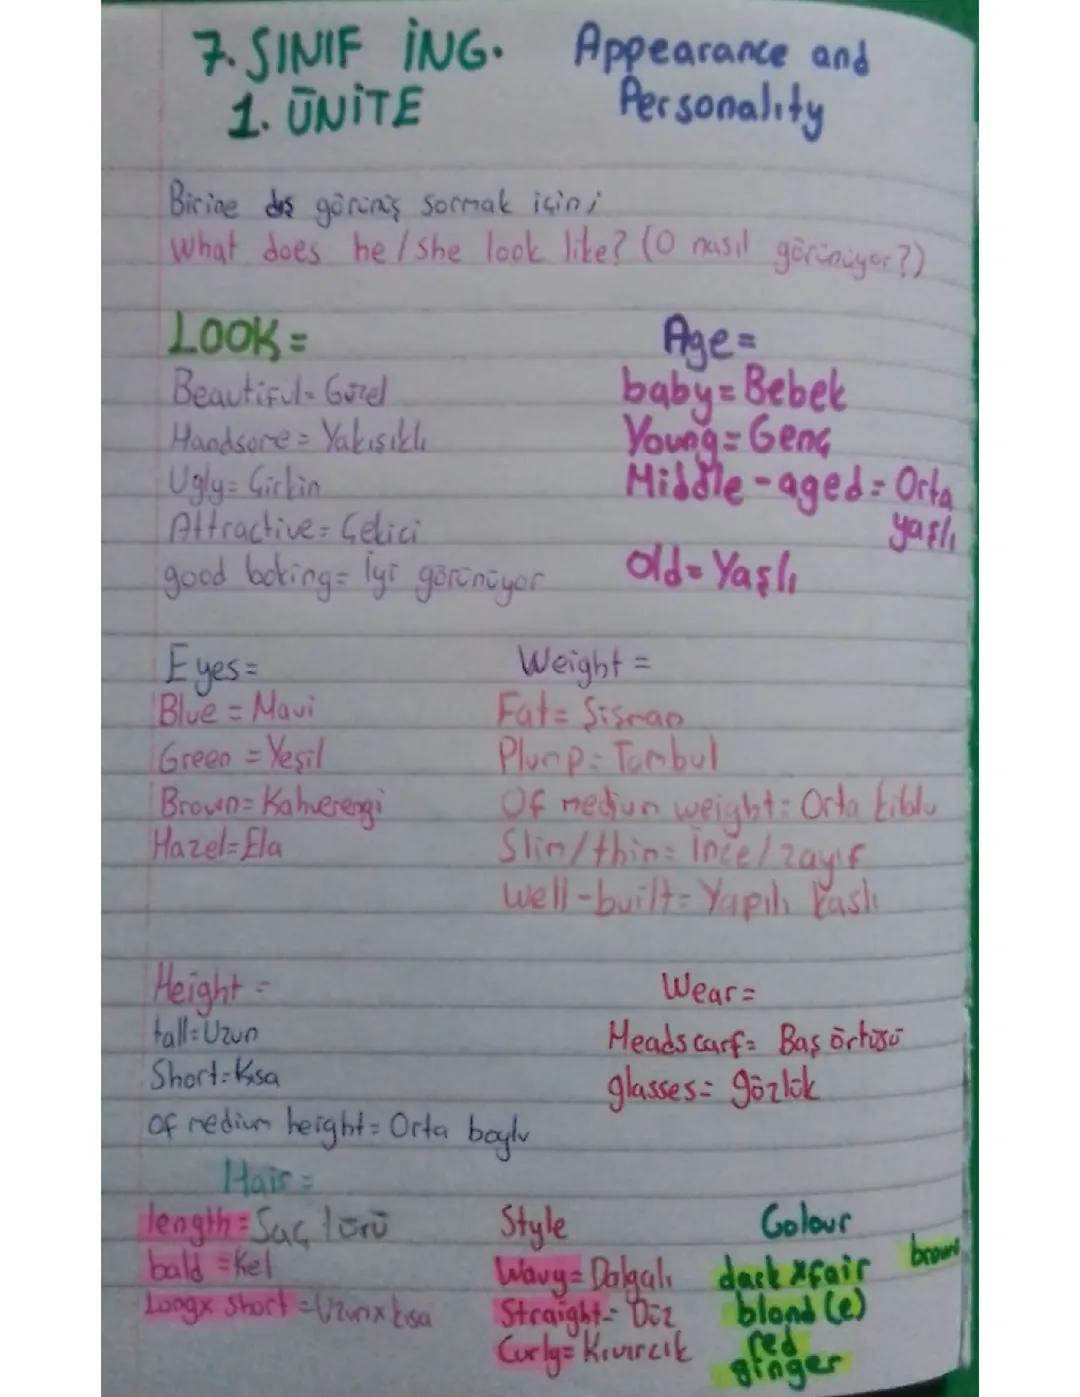 7. SINIF İNG.
1. ÜNİTE
Appearance and
Personality
Birine dış görünüş sormak için;
What does he / she look like? (O nasıl görünüyor?)
LOOK =
Beautiful = Güzel
Handsome = Yakışıklı
Ugly = Çirkin
Attractive = Çekici
good looking = İyi görünüyor
Age =
baby = Bebek
Young = Genç
Middle-aged = Orta
yaşlı
old = Yaşlı
Eyes =
Blue = Mavi
Green = Yeşil
Brown = Kahverengi
Hazel = Ela
Weight =
Fat = Şişman
Plump = Tombul
Of medium weight = Orta kiblu
Slim / thin = İnce / zayıf
Well-built = Yapılı Kaslı
Height =
tall = Uzun
Short = Kısa
of medium height = Orta boylu
Wear =
Headscarf = Baş örtüsü
glasses = gözlük
Hair =
length = Saç türü
bald = Kel
Long x short = Uzun x kısa
Style
Wavy = Dalgalı
Straight = Düz
Curly = Kıvırcık
Colour
dark x fair brown
blond (e)
red
ginger